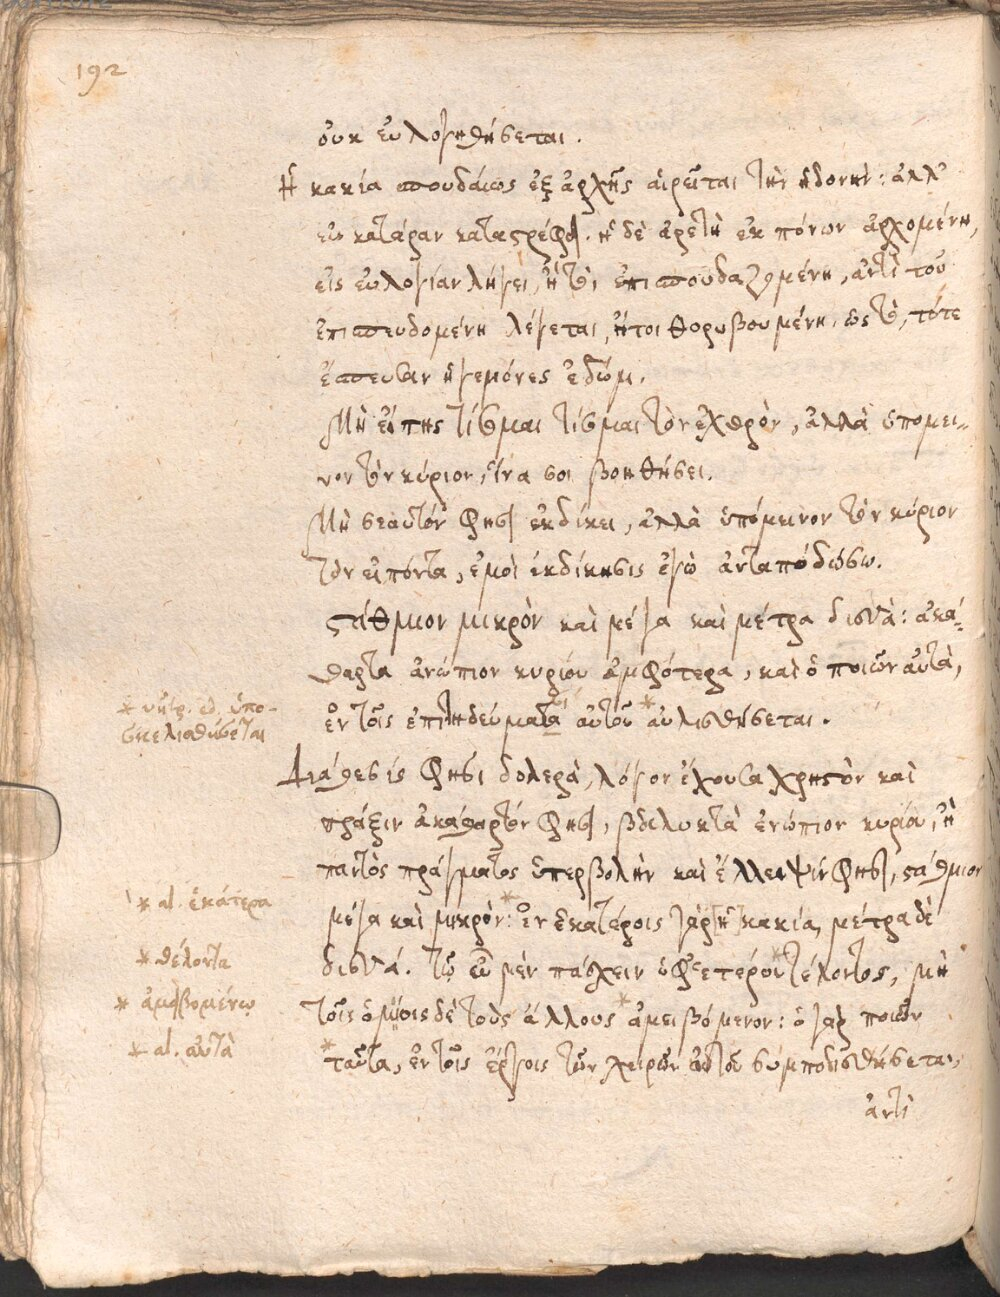 192
οὐκ εὐλογηθήσεται.
Ἡ κακία σπουδαίως ἐξ ἀρχῆς αἱρεῖται τὴν ἡδονὴν: ἀλλ'
εἰς κατάραν καταστρέφει. ἡ δὲ ἀρετὴ ἐκ πόνων ἀρχομένη,
εἰς εὐλογίαν λήγει, ἢ τὸ, ἐπισπουδαζομένη, ἀντὶ τοῦ
ἐπισπευδομένη λέγεται, ἤτοι θορυβουμένη, ὡς τὸ, τότε
ἔσπευσαν ἡγεμόνες ἐδώμ.
Μὴ εἴπης τίσομαι τὸν ἐχθρὸν, ἀλλὰ ὑπόμει-
νον τὸν κύριον, ἵνα σοι βοηθήσει.
Μὴ σεαυτὸν φησὶ ἐκδίκει, ἀλλὰ ὑπόμεινον τὸν κύριον
τὸν εἰπόντα, ἐμοὶ ἐκδίκησις ἐγὼ ἀνταποδώσω.
στάθμιον μικρὸν καὶ μέγα καὶ μέτρα δισσὰ: ἀκά-
θαρτα ἐνώπιον κυρίου ἀμφότερα, καὶ ὁ ποιῶν αὐτὰ,
ἐν τοῖς ἐπιτηδεύμασι αὐτοῦ * αὐλισθήσεται.
* ὑπο-
σκελισθήσεται
Διάθεσίς φησι δολερὰ, λόγον ἔχουσα χρηστὸν καὶ
πράξιν ἀκάθαρτόν φησι, βδελυκτὰ ἐνώπιον κυρίου, ἢ
παντὸς πράγματος ὑπερβολὴν καὶ ἔλλειψίν φησι, στάθμιον
μέγα καὶ μικρὸν: * ἐν ἑκατέροις γὰρ [ἡ] κακία, μέτρα δὲ
* al. ἑκάτερα
δισσά. τῷ μὲν πάσχειν ὑφ' ἑτέρου * τέλοντος, μὴ
* θέλοντα
τοῖς ὁμοίοις δὲ τοὺς ἄλλους * ἀμειβόμενον: ὁ γὰρ ποιῶν
* ἀμειβομένῳ
* ταῦτα, ἐν τοῖς ἔργοις τῶν χειρῶν αὐτοῦ συμποδισθήσεται,
* al. αὐτὰ
ἀντὶ